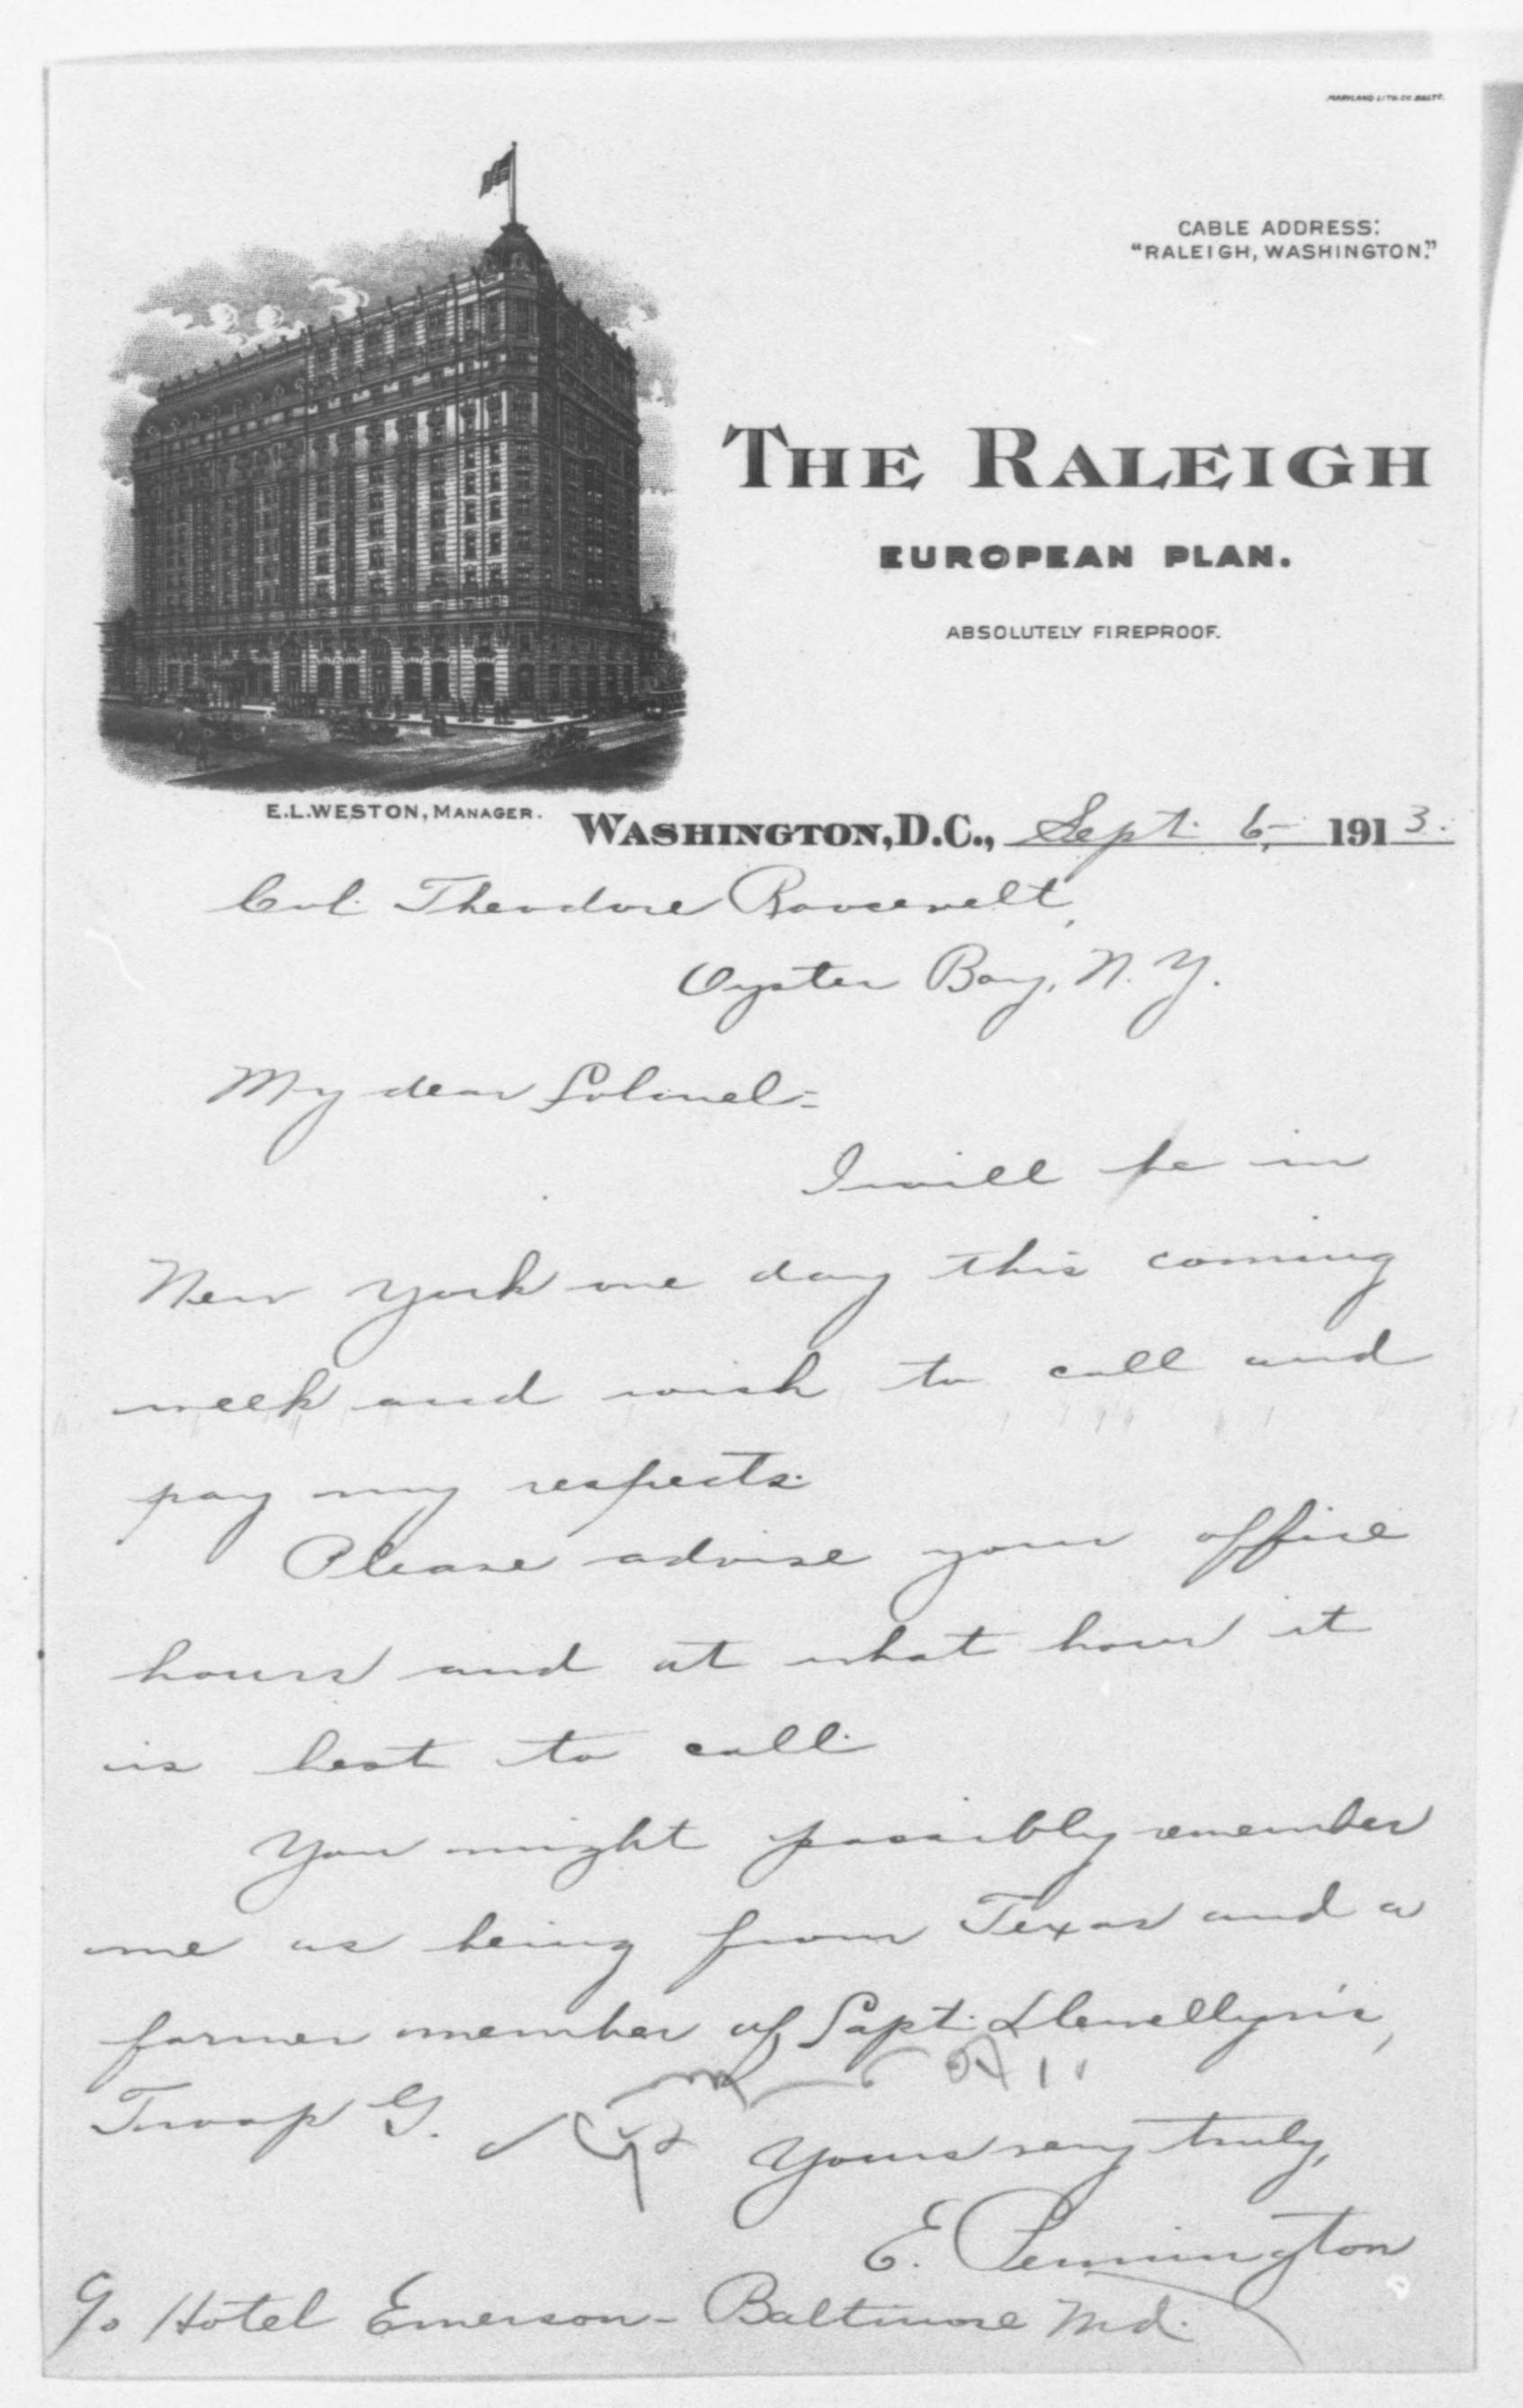 MARYLAND LITH. CO. BALTO.
CABLE ADDRESS:
"RALEIGH, WASHINGTON."
THE RALEIGH
EUROPEAN PLAN.
ABSOLUTELY FIREPROOF.
E.L. WESTON, MANAGER.
WASHINGTON, D.C., Sept. 6, 1913.
Col. Theodore Roosevelt,
Oyster Bay, N.Y.
My dear Colonel:
I will be in
New York one day this coming
week and wish to call and
pay my respects.
Please advise your office
hours and at what hour it
is best to call.
You might possibly remember
me as being from Texas and a
former member of Capt. Llewellyn's,
Troop G.
Yours very truly,
E. Pennington
c/o Hotel Emerson - Baltimore Md.